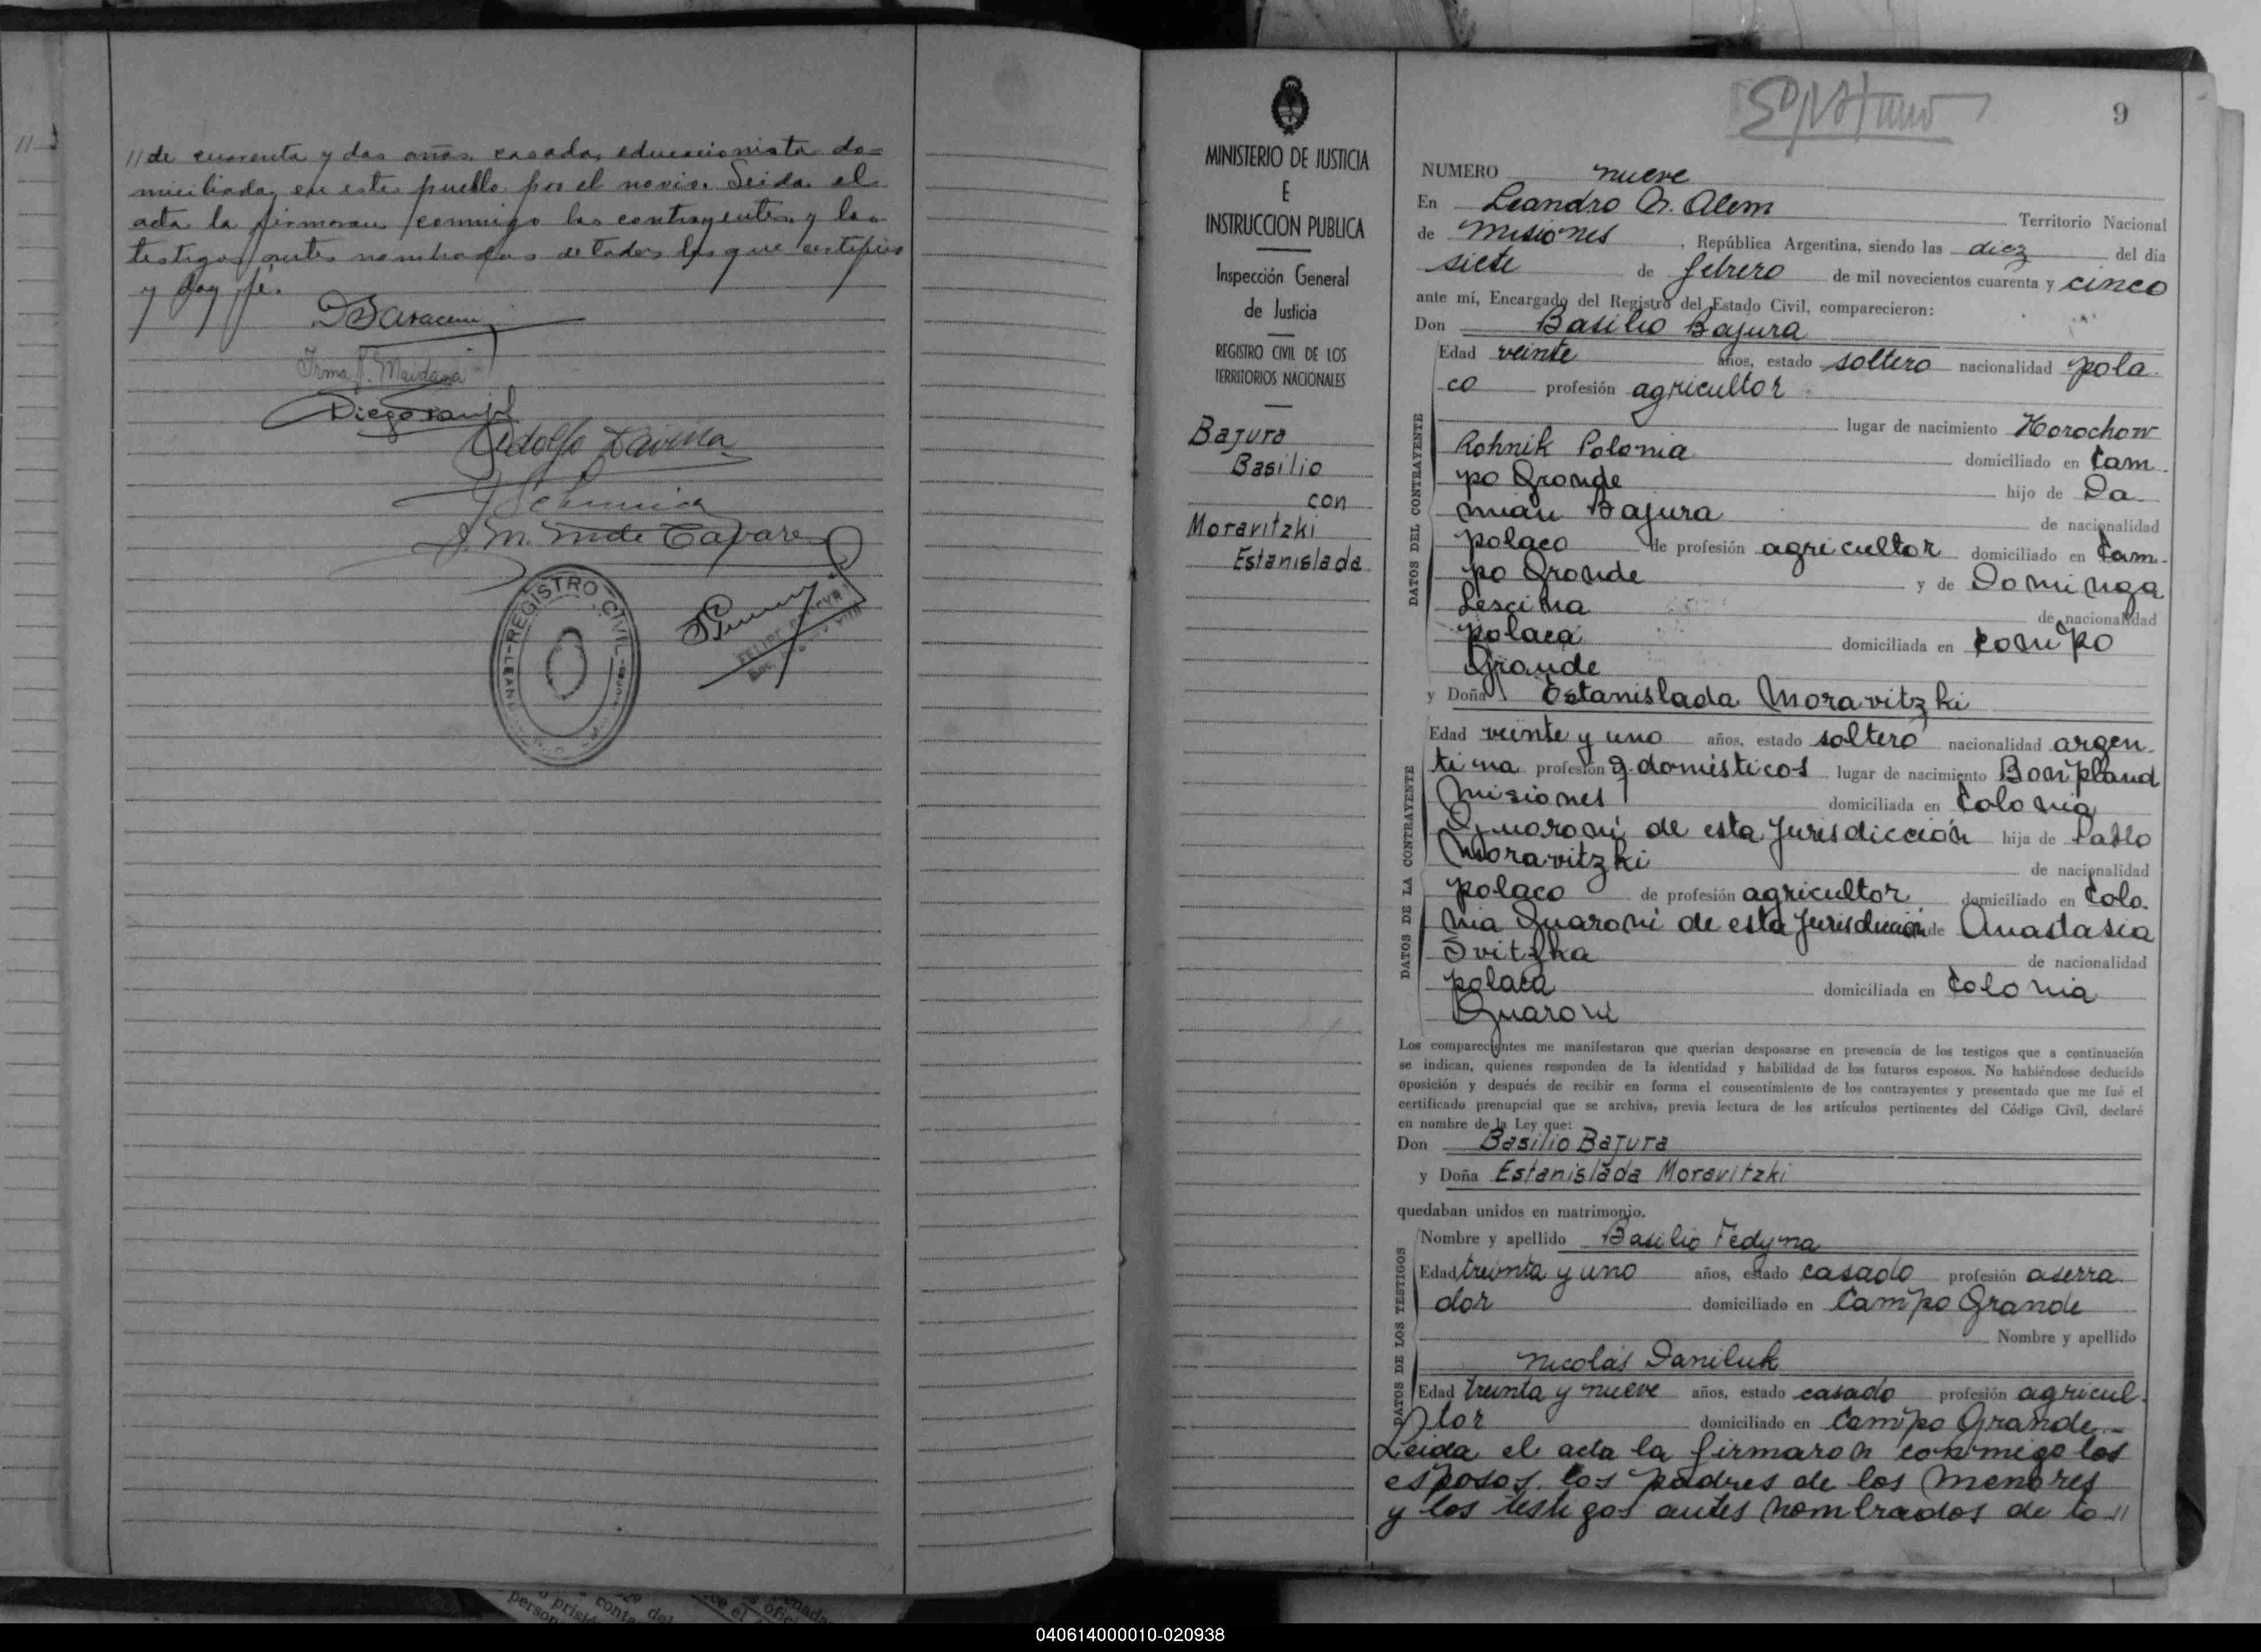 // de cuarenta y dos años, casada, educacionista do=
miciliada, en este pueblo por el novio. Leida el
acta la firmaran conmigo los contrayentes y los
testigos antes nombrados de todos los que certifico
y doy fé.
Irma Maidana
Adolfo
REGISTRO CIVIL
MINISTERIO DE JUSTICIA
E
INSTRUCCION PUBLICA
Inspección General
de Justicia
REGISTRO CIVIL DE LOS
TERRITORIOS NACIONALES
Bajura
Basilio
con
Moravitzki
Estanislada
9
NUMERO nueve
En Leandro N. Alem Territorio Nacional
de Misiones, República Argentina, siendo las diez del día
siete de febrero de mil novecientos cuarenta y cinco
ante mí, Encargado del Registro del Estado Civil, comparecieron:
Don Basilio Bajura
DATOS DEL CONTRAYENTE
Edad veinte años, estado soltero nacionalidad pola-
co profesión agricultor
lugar de nacimiento Horochow
Rohnik Polonia domiciliado en Cam-
po Grande hijo de Da-
mian Bajura de nacionalidad
polaco de profesión agricultor domiciliado en Cam-
po Grande y de Dominga
Lescina de nacionalidad
polaca domiciliada en Campo
Grande
y Doña Estanislada Moravitzki
DATOS DE LA CONTRAYENTE
Edad veinte y uno años, estado soltero nacionalidad argen-
tina profesión q. domésticos lugar de nacimiento Bonpland
Misiones domiciliada en Colonia
Guaraní de esta Jurisdicción hija de Pablo
Moravitzki de nacionalidad
polaco de profesión agricultor domiciliado en Colo-
nia Guaraní de esta Jurisdicción de Anastasia
Svitzka de nacionalidad
polaca domiciliada en Colonia
Guaraní
Los comparecientes me manifestaron que querían desposarse en presencia de los testigos que a continuación
se indican, quienes responden de la identidad y habilidad de los futuros esposos. No habiéndose deducido
oposición y después de recibir en forma el consentimiento de los contrayentes y presentado que me fué el
certificado prenupcial que se archiva, previa lectura de los artículos pertinentes del Código Civil, declaré
en nombre de la Ley que:
Don Basilio Bajura
y Doña Estanislada Moravitzki
quedaban unidos en matrimonio.
DATOS DE LOS TESTIGOS
Nombre y apellido Basilio Fedyna
Edad treinta y uno años, estado casado profesión aserra-
dor domiciliado en Campo Grande
Nombre y apellido
Nicolás Daniluk
Edad treinta y nueve años, estado casado profesión agricul-
tor domiciliado en Campo Grande.-
Leida el acta la firmaron conmigo los
esposos, los padres de los menores
y los testigos antes nombrados de to //
040614000010-020938